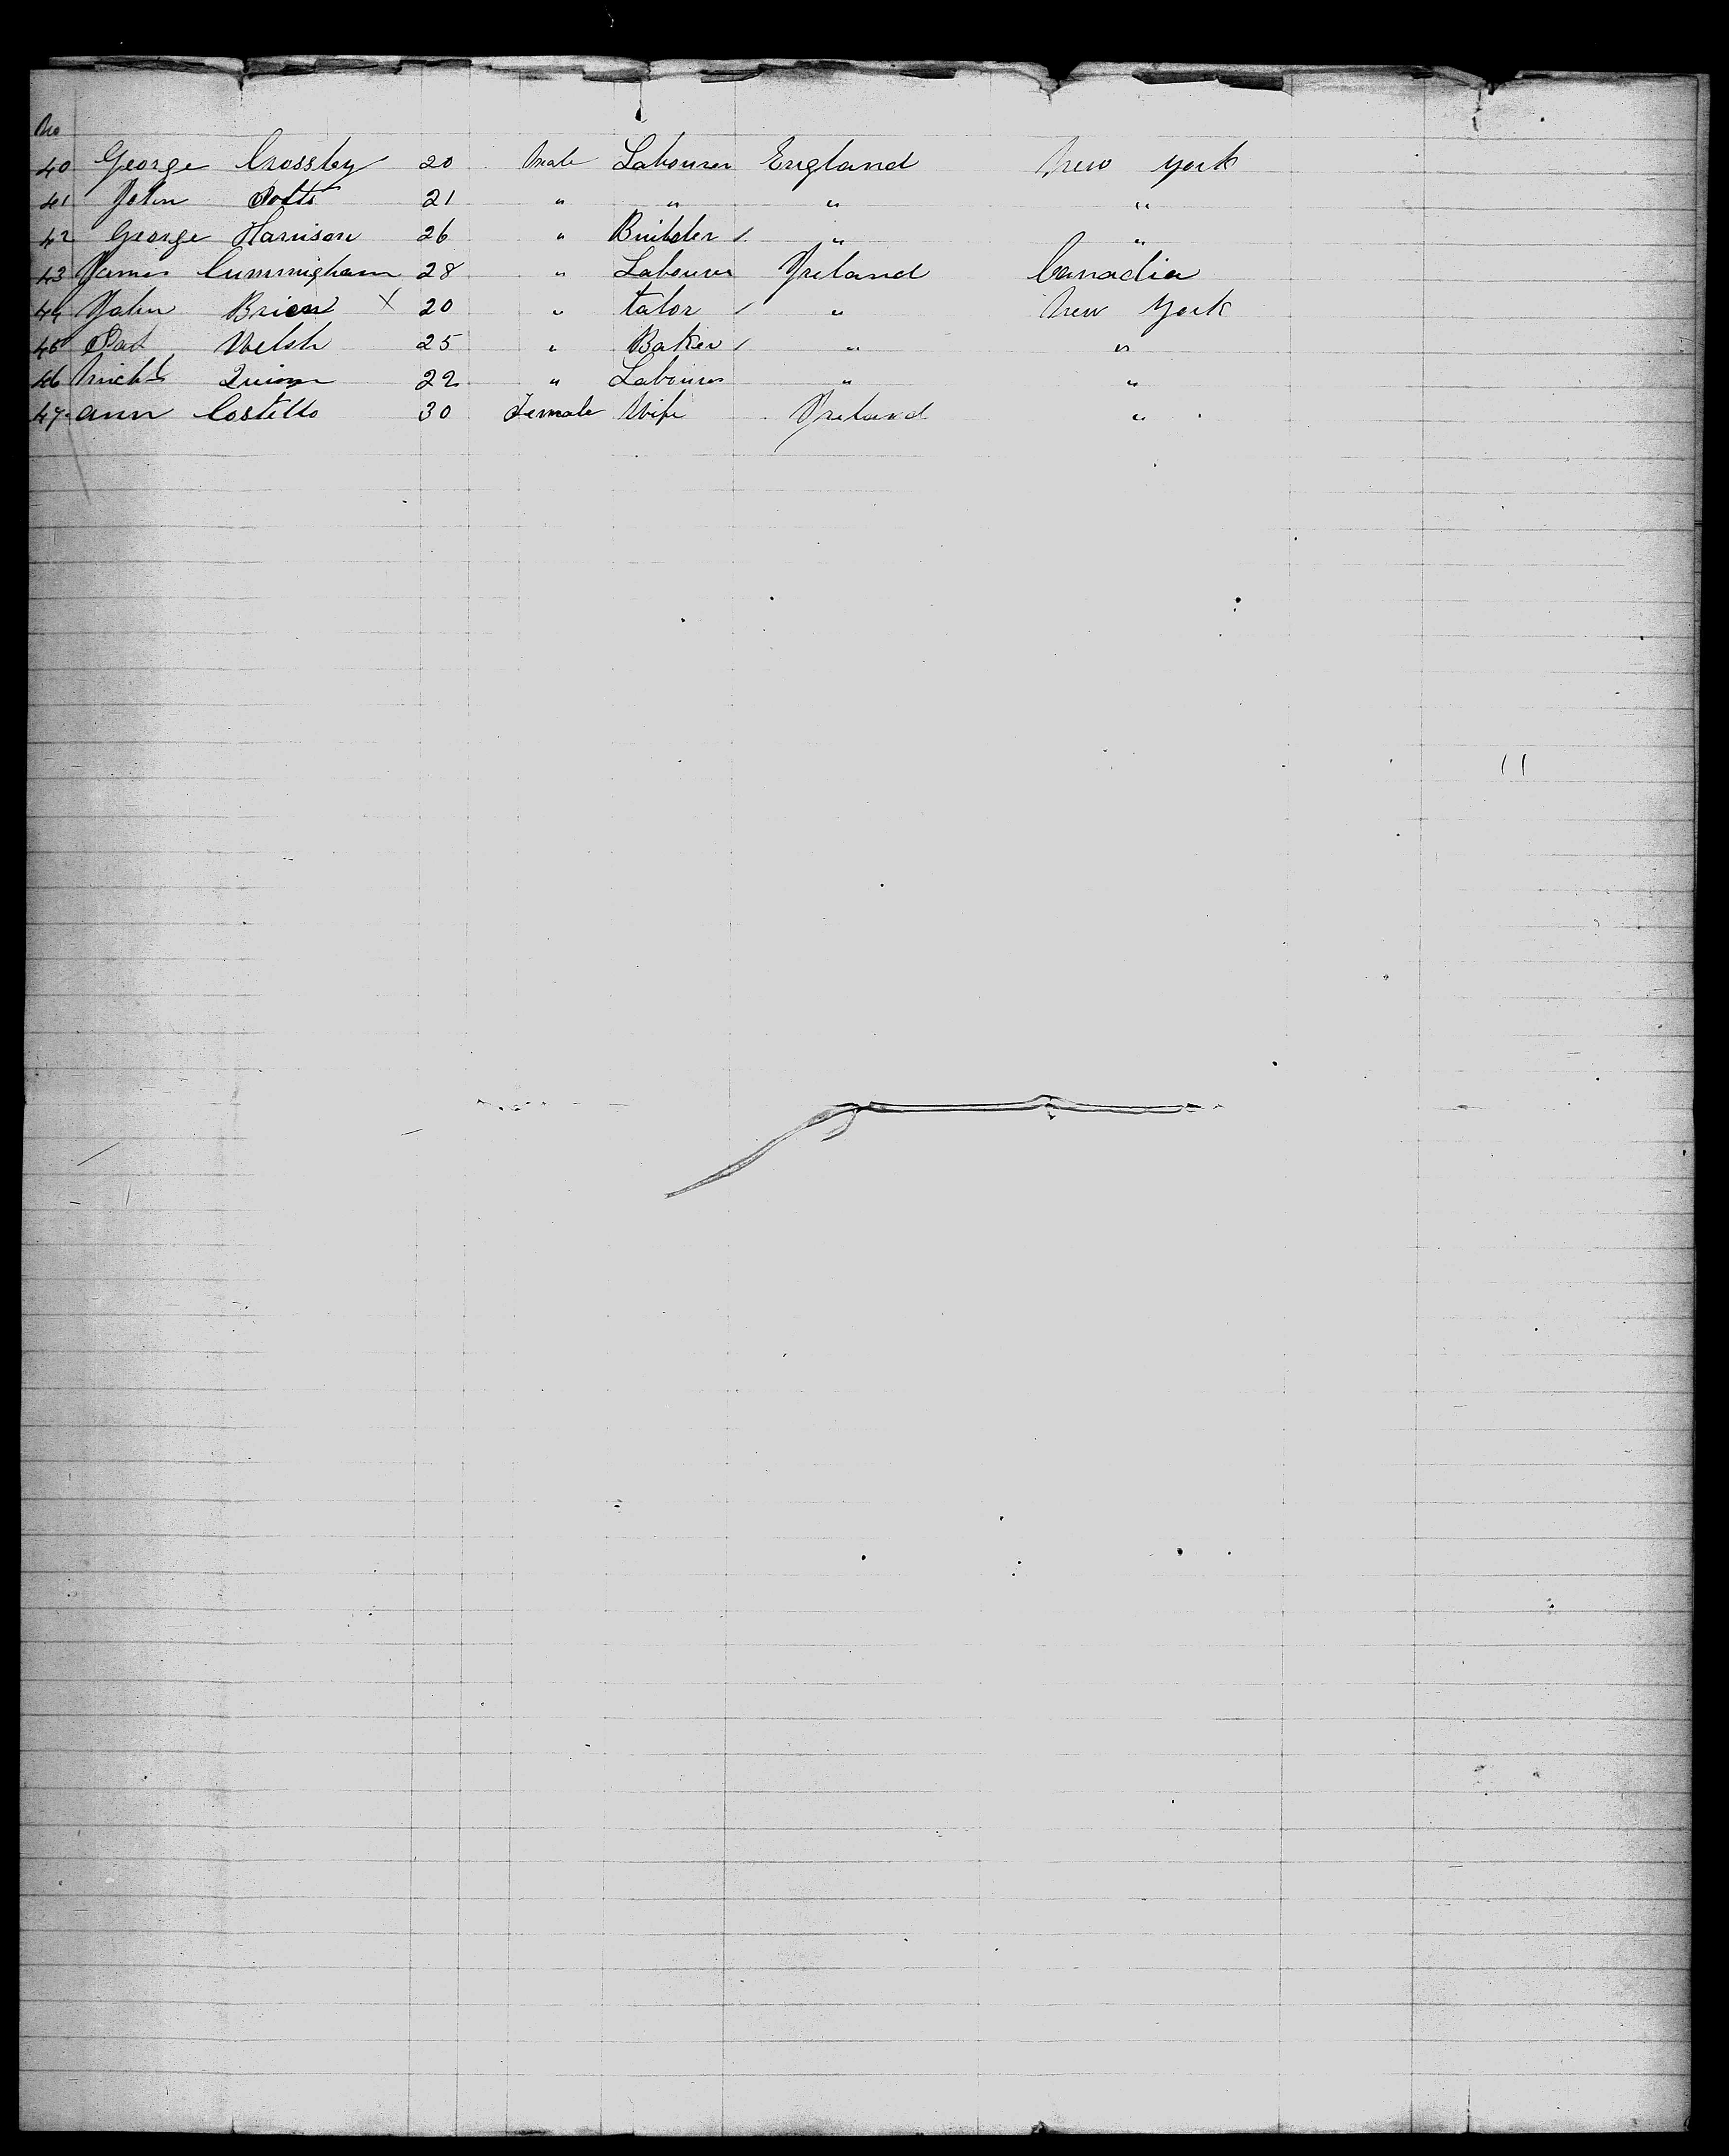 No
40 George Crossley 20 Male Labourer England New York
41 John Potts 21 " " " "
42 George Harrison 26 " Builder / " "
43 James Cunningham 28 " Labourer Ireland Canadia
44 John Brien X 20 " talor / " New York
45 Pat Welsh 25 " Baker / " "
46 Michl Quinn 22 " Labourer " "
47 Ann Costello 30 Female Wife Ireland "